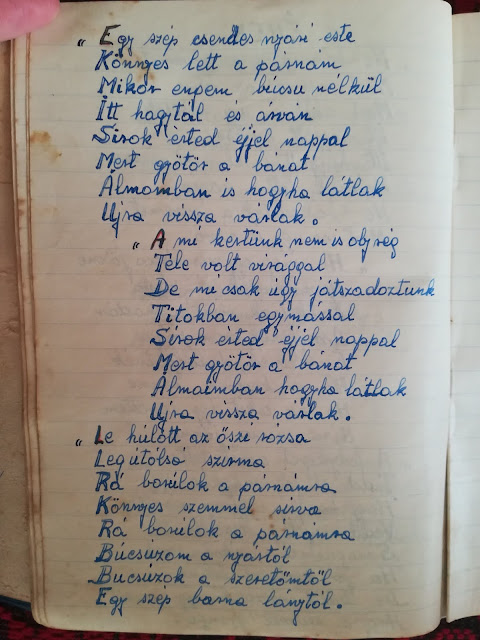 „ Egy szép csendes nyári este
Könnyes lett a párnám
Mikor engem búcsu nélkül
Itt hagytál és árván
Sirok érted éjjel nappal
Mert gyötör a bánat
Álmomban is hogyha látlak
Ujra vissza várlak.
„ A mi kertünk nem is oly rég
Tele volt virággal
De mi csak úgy játszadoztunk
Titokban egymással
Sirok érted éjjel nappal
Mert gyötör a bánat
Álmaimban hogyha látlak
Ujra vissza várlak.
„ Le húlott az őszi rózsa
Legútólsó szirma
Rá borúlok a párnámra
Könnyes szemmel sirva
Rá borúlok a párnámra
Búcsúzom a nyártól
Bucsúzok a szeretőmtől
Egy szép barna lánytól.